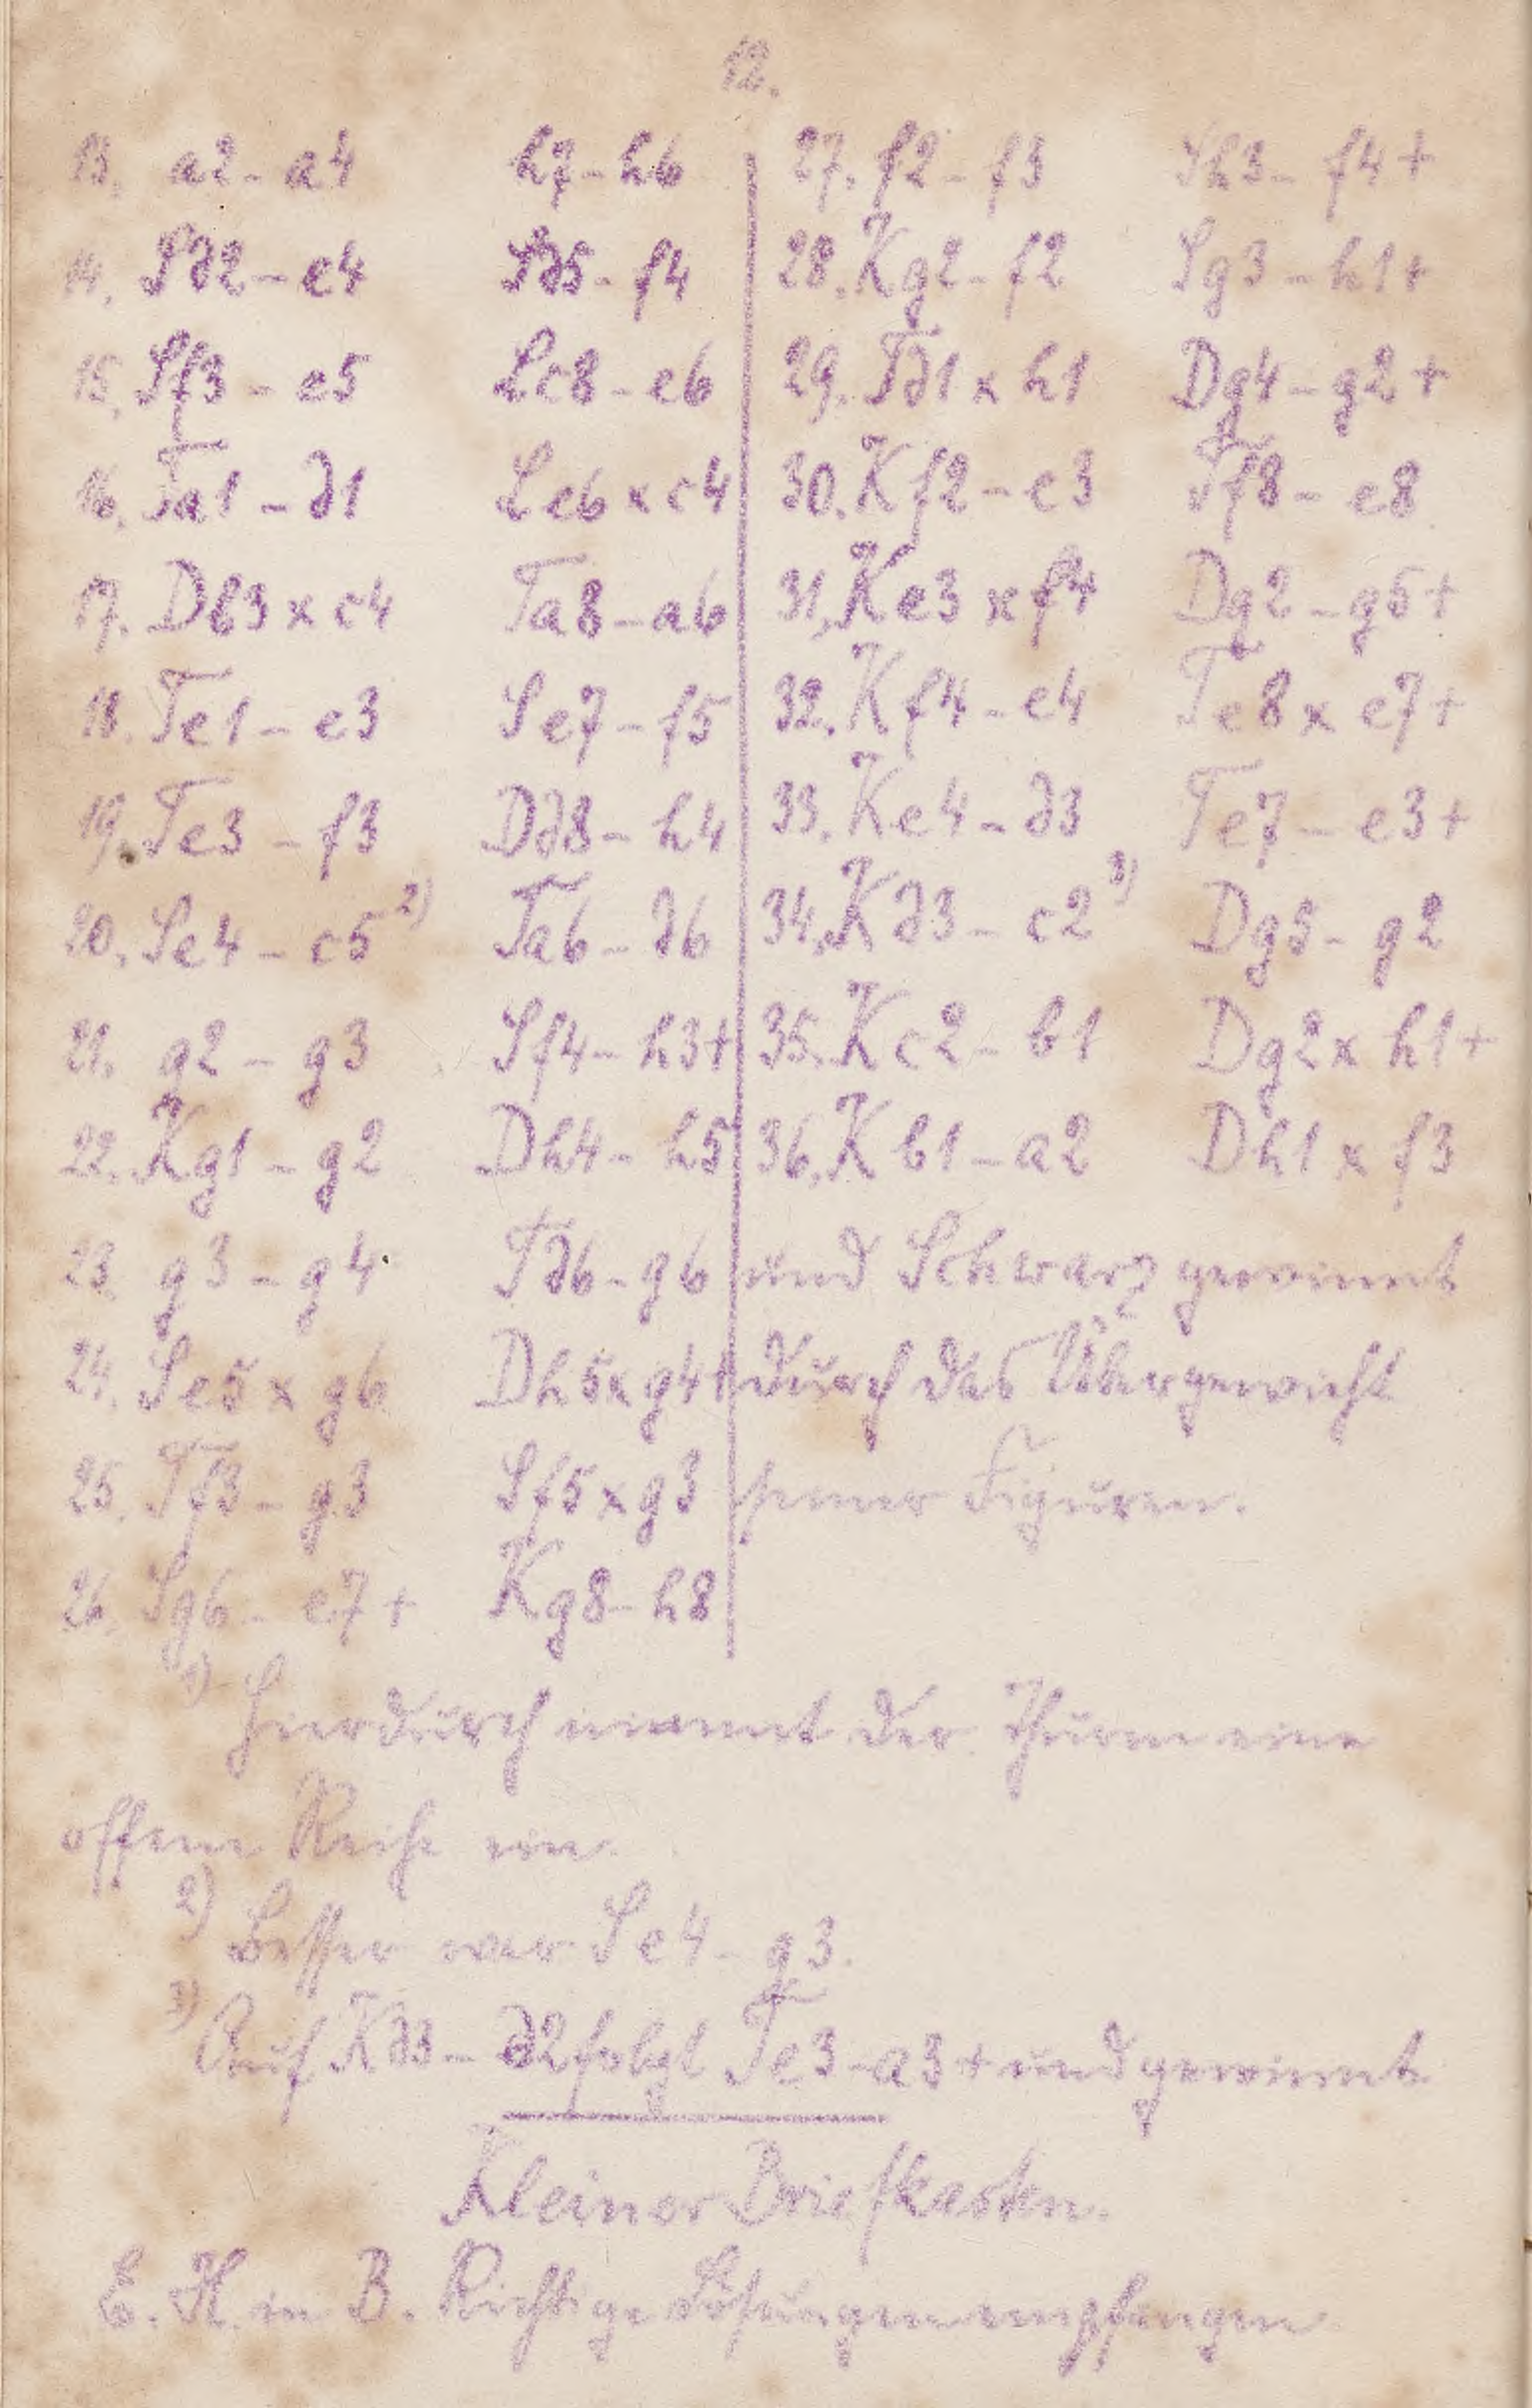 12.
13. a2 - a4 h7 - h6
14. Sd2 - e4 Sd5 - f4
15. Sf3 - e5 Lc8 - e6
16. Ta1 - d1 Le6 x c4
17. Db3 x c4 Ta8 - a6
18. Te1 - e3 Se7 - f5
19. Te3 - f3 Dd8 - h4
20. Se4 - c5 2) Ta6 - d6
21. g2 - g3 Sf4 - h3+
22. Kg1 - g2 Dh4 - h5
23. g3 - g4 Td6 - g6
24. Se5 x g6 Dh5 x g4+
25. Tf3 - g3 Sf5 x g3
26. Sg6 - e7+ Kg8 - h8
27. f2 - f3 Sh3 - f4+
28. Kg2 - f2 Sg3 - h1+
29. Td1 x h1 Dg4 - g2+
30. Kf2 - e3 Tf8 - e8
31. Ke3 x f4 Dg2 - g5+
32. Kf4 - e4 Te8 x e7+
33. Ke4 - d3 Te7 - e3+
34. Kd3 - c2 3) Dg5 - g2
35. Kc2 - b1 Dg2 x h1+
36. Kb1 - a2 Dh1 x f3
und Schwarz gewinnt
durch das Übergewicht
seiner Figuren.
1) Hierdurch nimmt der Thurm eine
offene Reihe ein.
2) Besser war Se4 - g3.
3) Auf Kd3 - d2 folgt Te3 - a3+ und gewinnt
Kleiner Briefkasten.
E. H. in B. Richtige Lösungen empfangen